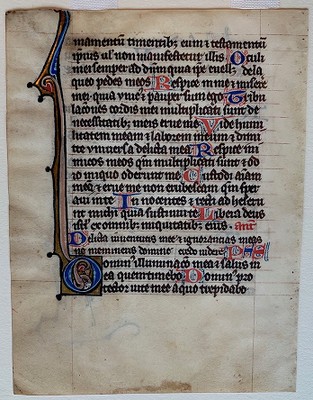 mamentū timentibz eum et testamentū
ipsius ut manifestetur illis Oculi
mei semper ad dn̄m quia ipse euell; de la
queo pedes meos Respice in me et misere
mei quia unic9 et pauper sum ego Tribu
lationes cordis mei multiplicate sunt de
necessitatibz meis erue me Vide humi
litatem meam et laborem meum et dimit
te uniuersa delicta mea Respice ini
micos meos qm̄ multiplicati sunt et od
io iniquo oderunt me Custodi aīam
meā et erue me non erubescam qm̄ spera
ui in te Innocentes et recti adheserunt
michi quia sustinui te Libera deus
isrl̄ ex omnibz suis añ
Delicta iuuentutis mee et ignorantias meas
ne memineris domine credo uidere ps
Domin9 illuminatio mea et salus m
ea quem timebo Domin9 pro
tector uite mee a quo trepidabo